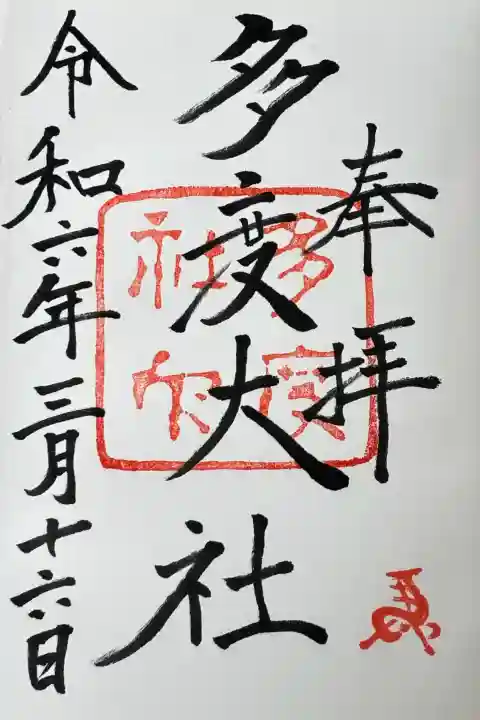 奉拝
多度大社
令和六年三月十六日
多度
社印